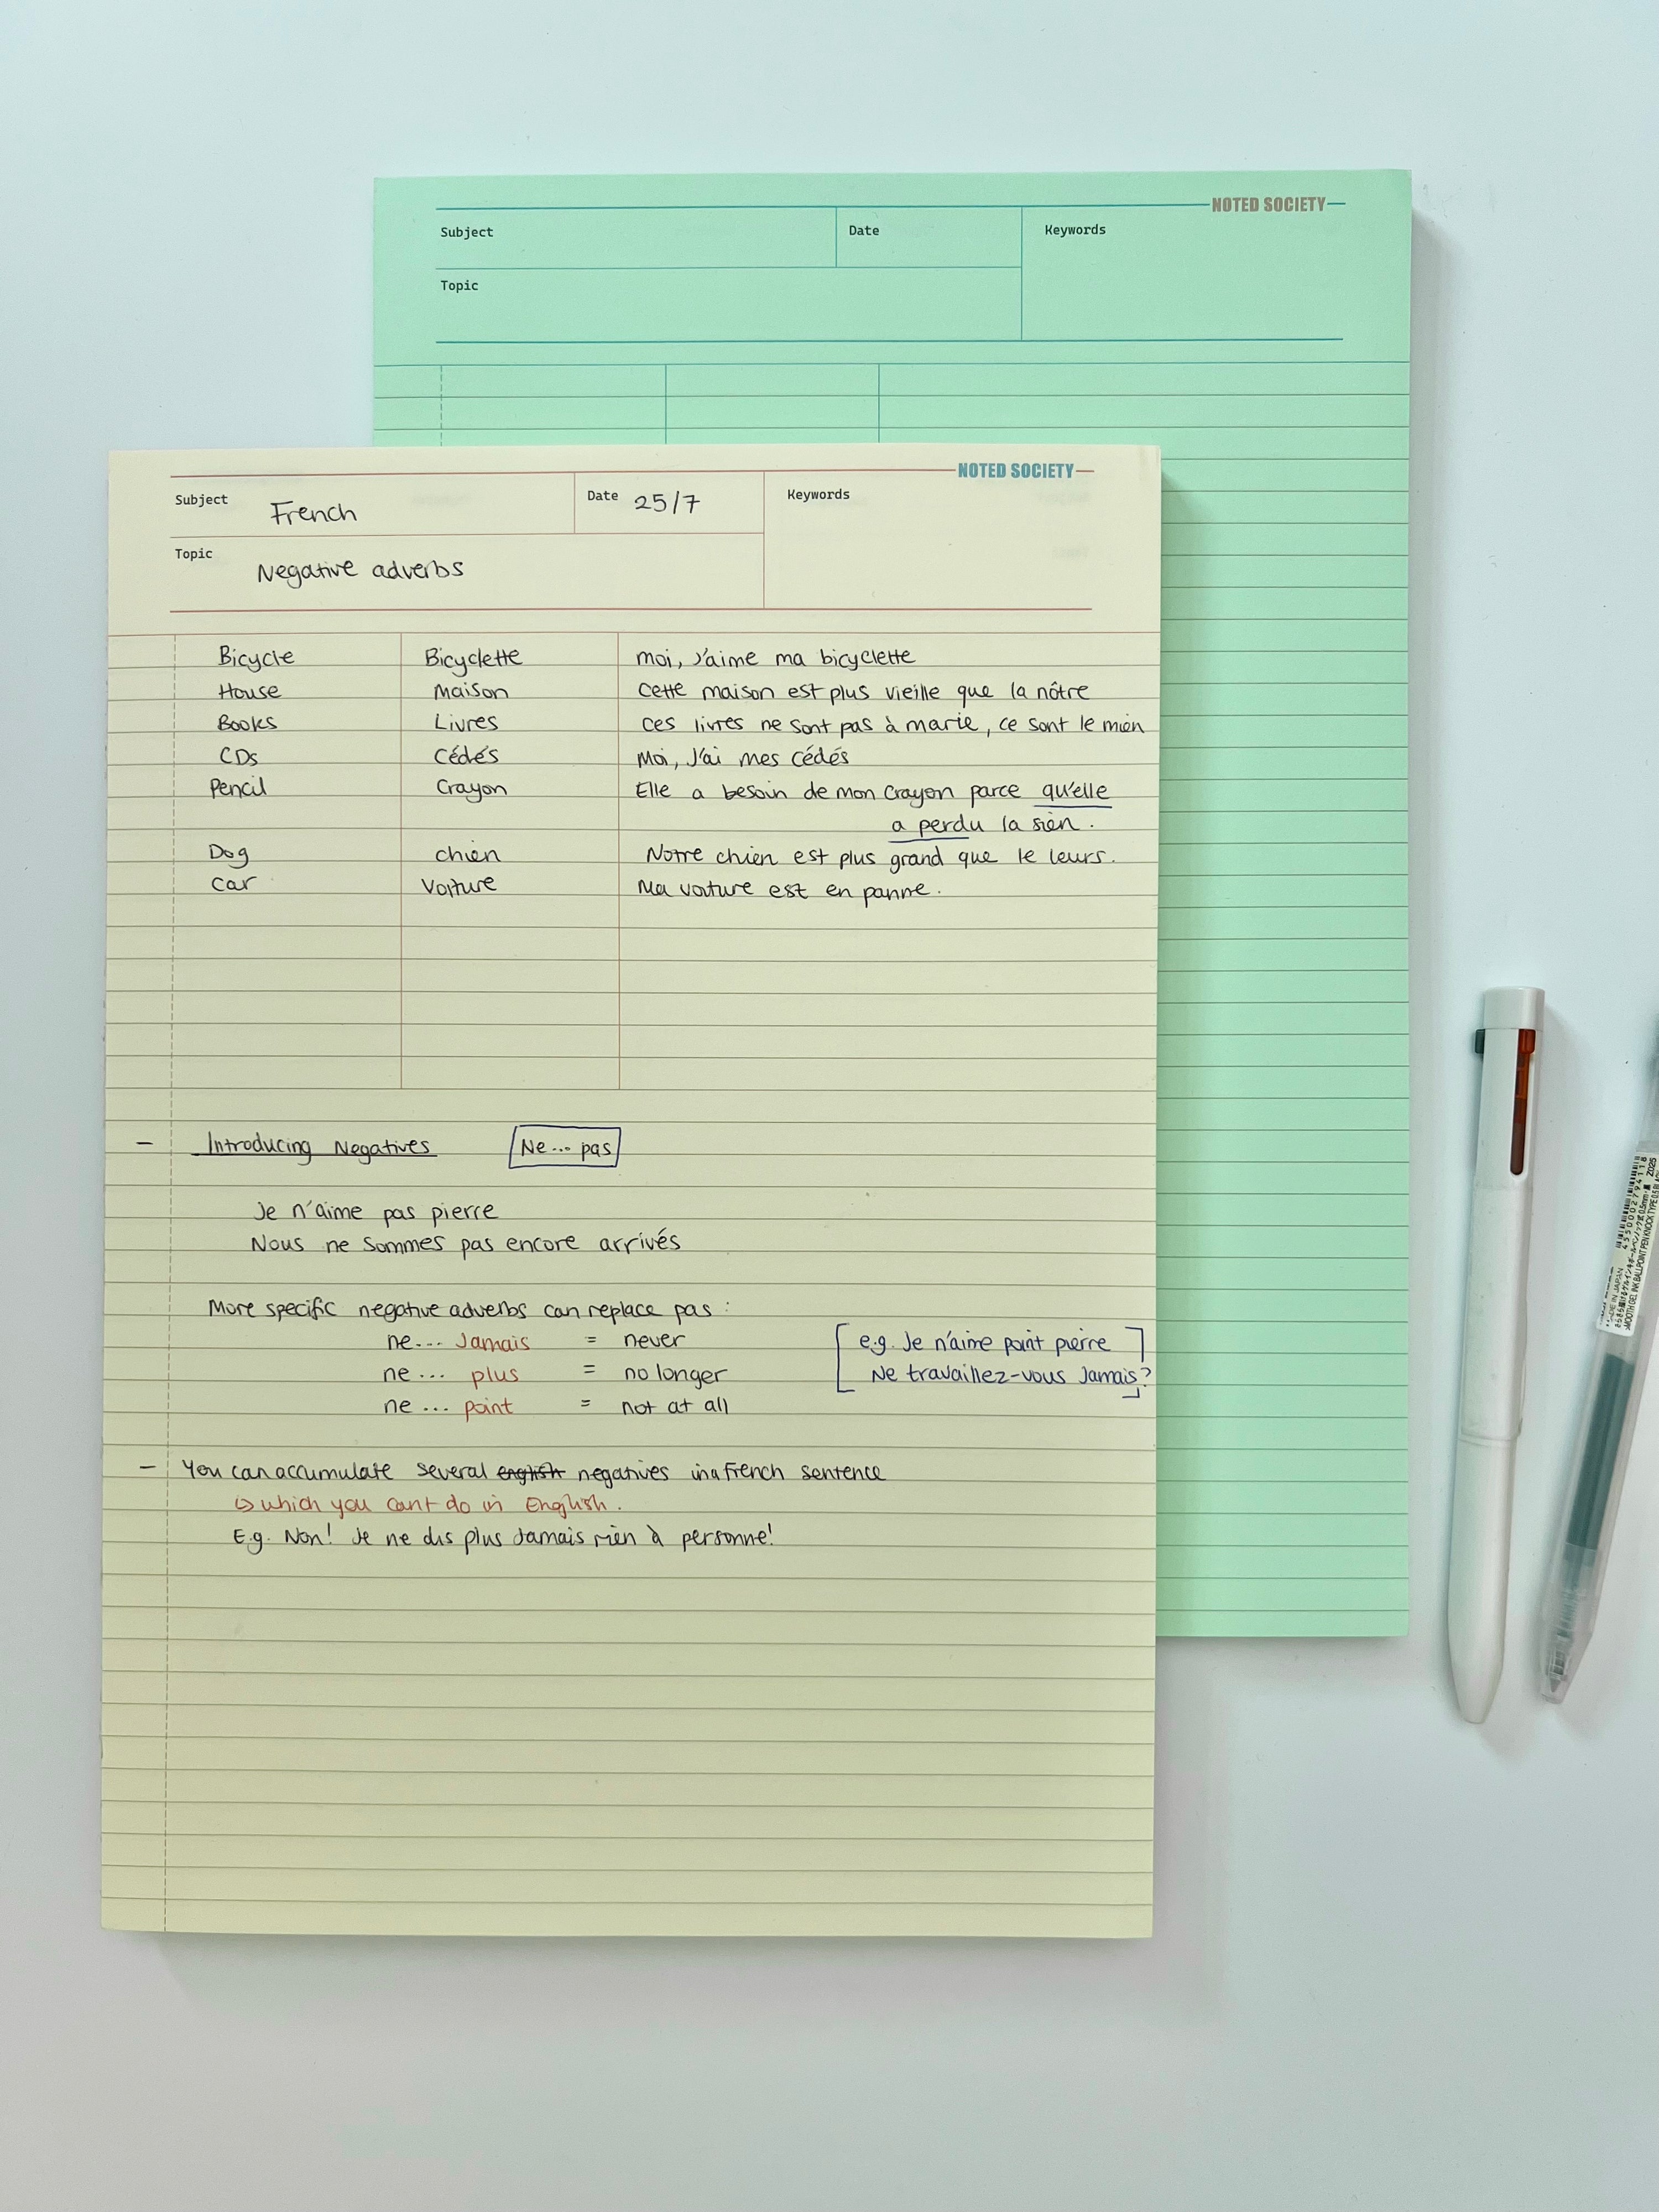 NOTED SOCIETY
Subject
Date
Keywords
Topic
NOTED SOCIETY
Subject French
Date 25/7
Keywords
Topic Negative adverbs
Bicycle Bicyclette moi, J'aime ma bicyclette
House Maison Cette maison est plus vieille que la nôtre
Books Livres ces livres ne sont pas à marie, ce sont le mien
CDs Cédés Moi, J'ai mes cédés
Pencil Crayon Elle a besoin de mon Crayon parce qu'elle
a perdu la sien.
Dog chien Notre chien est plus grand que le leurs.
Car Voiture Ma voiture est en panne.
- Introducing Negatives Ne... pas
Je n'aime pas pierre
Nous ne sommes pas encore arrivés
More specific negative adverbs can replace pas :
ne... Jamais = never e.g. Je n'aime point pierre
ne... plus = no longer Ne travaillez-vous Jamais?
ne... point = not at all
- You can accumulate several english negatives in a French sentence
↳ which you cant do in English.
E.g. Non! Je ne dis plus Jamais rien à personne!
MADE IN JAPAN
4550002794118